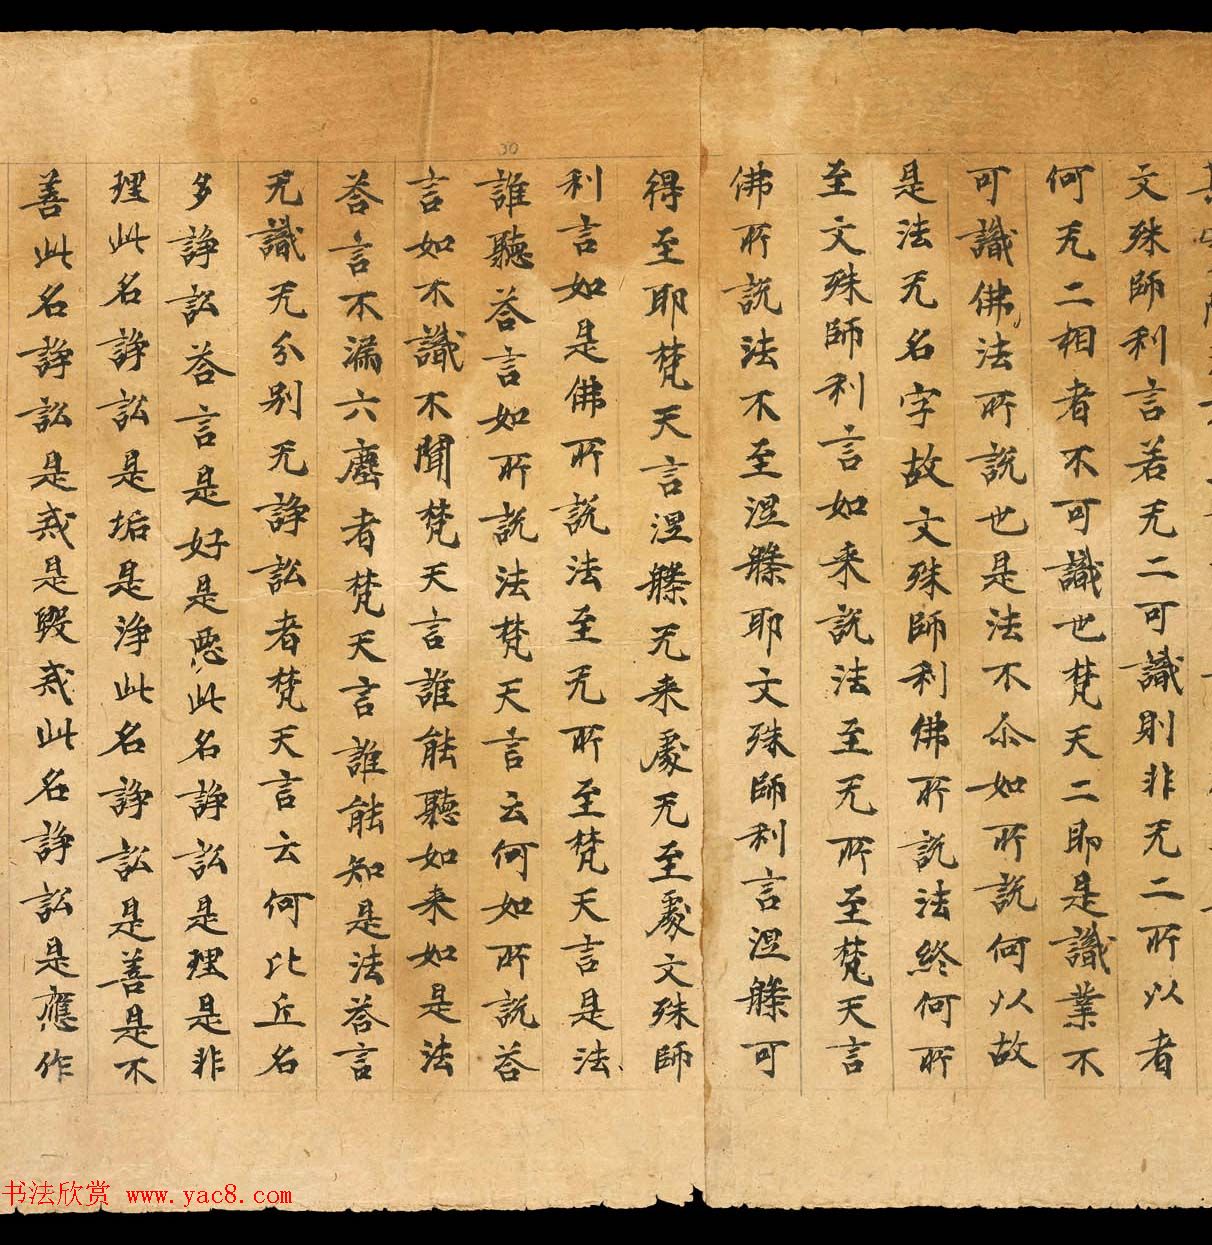 文殊師利言若无二可識則非无二所以者
何无二相者不可識世梵天二即是識業不
可識佛法所說世是法不尒如所說何以故
是法无名字故文殊師利佛所說法終何所
至文殊師利言如来說法至无所至梵天言
佛所說法不至涅槃耶文殊師利言涅槃可
得至耶梵天言涅槃无来處无至處文殊師
利言如是佛所說法至无所至梵天言是法
誰聽荅言如所說法梵天言云何如所說荅
言如不識不聞梵天言誰能聽如来如是法
荅言不漏六塵者梵天言誰能知是法荅言
无識无分別无諍訟者梵天言云何比丘名
多諍訟荅言是好是惡此名諍訟是理是非
理此名諍訟是垢是淨此名諍訟是善是不
善此名諍訟是戒是毀戒此名諍訟是應作
30
书法欣赏 www.yac8.com